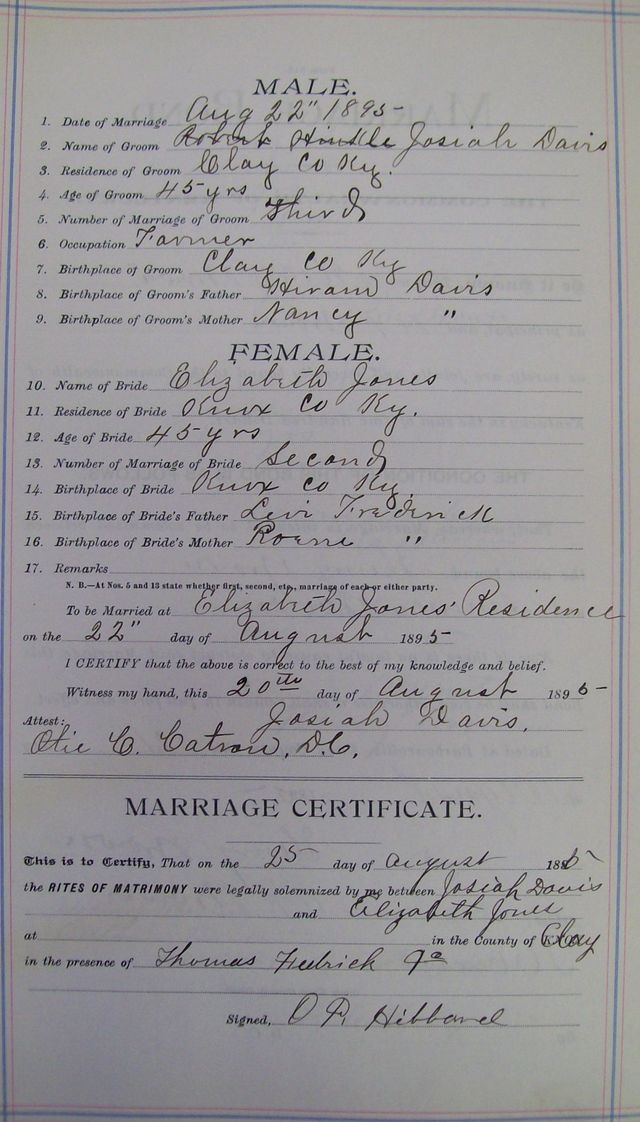 MALE.
1. Date of Marriage Aug 22" 1895
2. Name of Groom Robert Hinkle Josiah Davis
3. Residence of Groom Clay Co Ky.
4. Age of Groom 45 yrs
5. Number of Marriage of Groom Third
6. Occupation Farmer
7. Birthplace of Groom Clay Co Ky
8. Birthplace of Groom's Father Hiram Davis
9. Birthplace of Groom's Mother Nancy "
FEMALE.
10. Name of Bride Elizabeth Jones
11. Residence of Bride Knox Co Ky.
12. Age of Bride 45 yrs
13. Number of Marriage of Bride Second
14. Birthplace of Bride Knox Co Ky.
15. Birthplace of Bride's Father Levi Frederick
16. Birthplace of Bride's Mother "
17. Remarks
N. B.—At Nos. 5 and 13 state whether first, second, etc., marriage of each or either party.
To be Married at Elizabeth Jones' Residence
on the 22" day of August 1895
I CERTIFY that the above is correct to the best of my knowledge and belief.
Witness my hand, this 20th day of August 1895
Josiah Davis.
Attest:
Otie C. Catron, D.C.
MARRIAGE CERTIFICATE.
This is to Certify, That on the 25 day of August 1895
the RITES OF MATRIMONY were legally solemnized by me between Josiah Davis
and Elizabeth Jones
at in the County of Clay
in the presence of Thomas Fedrick
Signed, O P. Hibbard